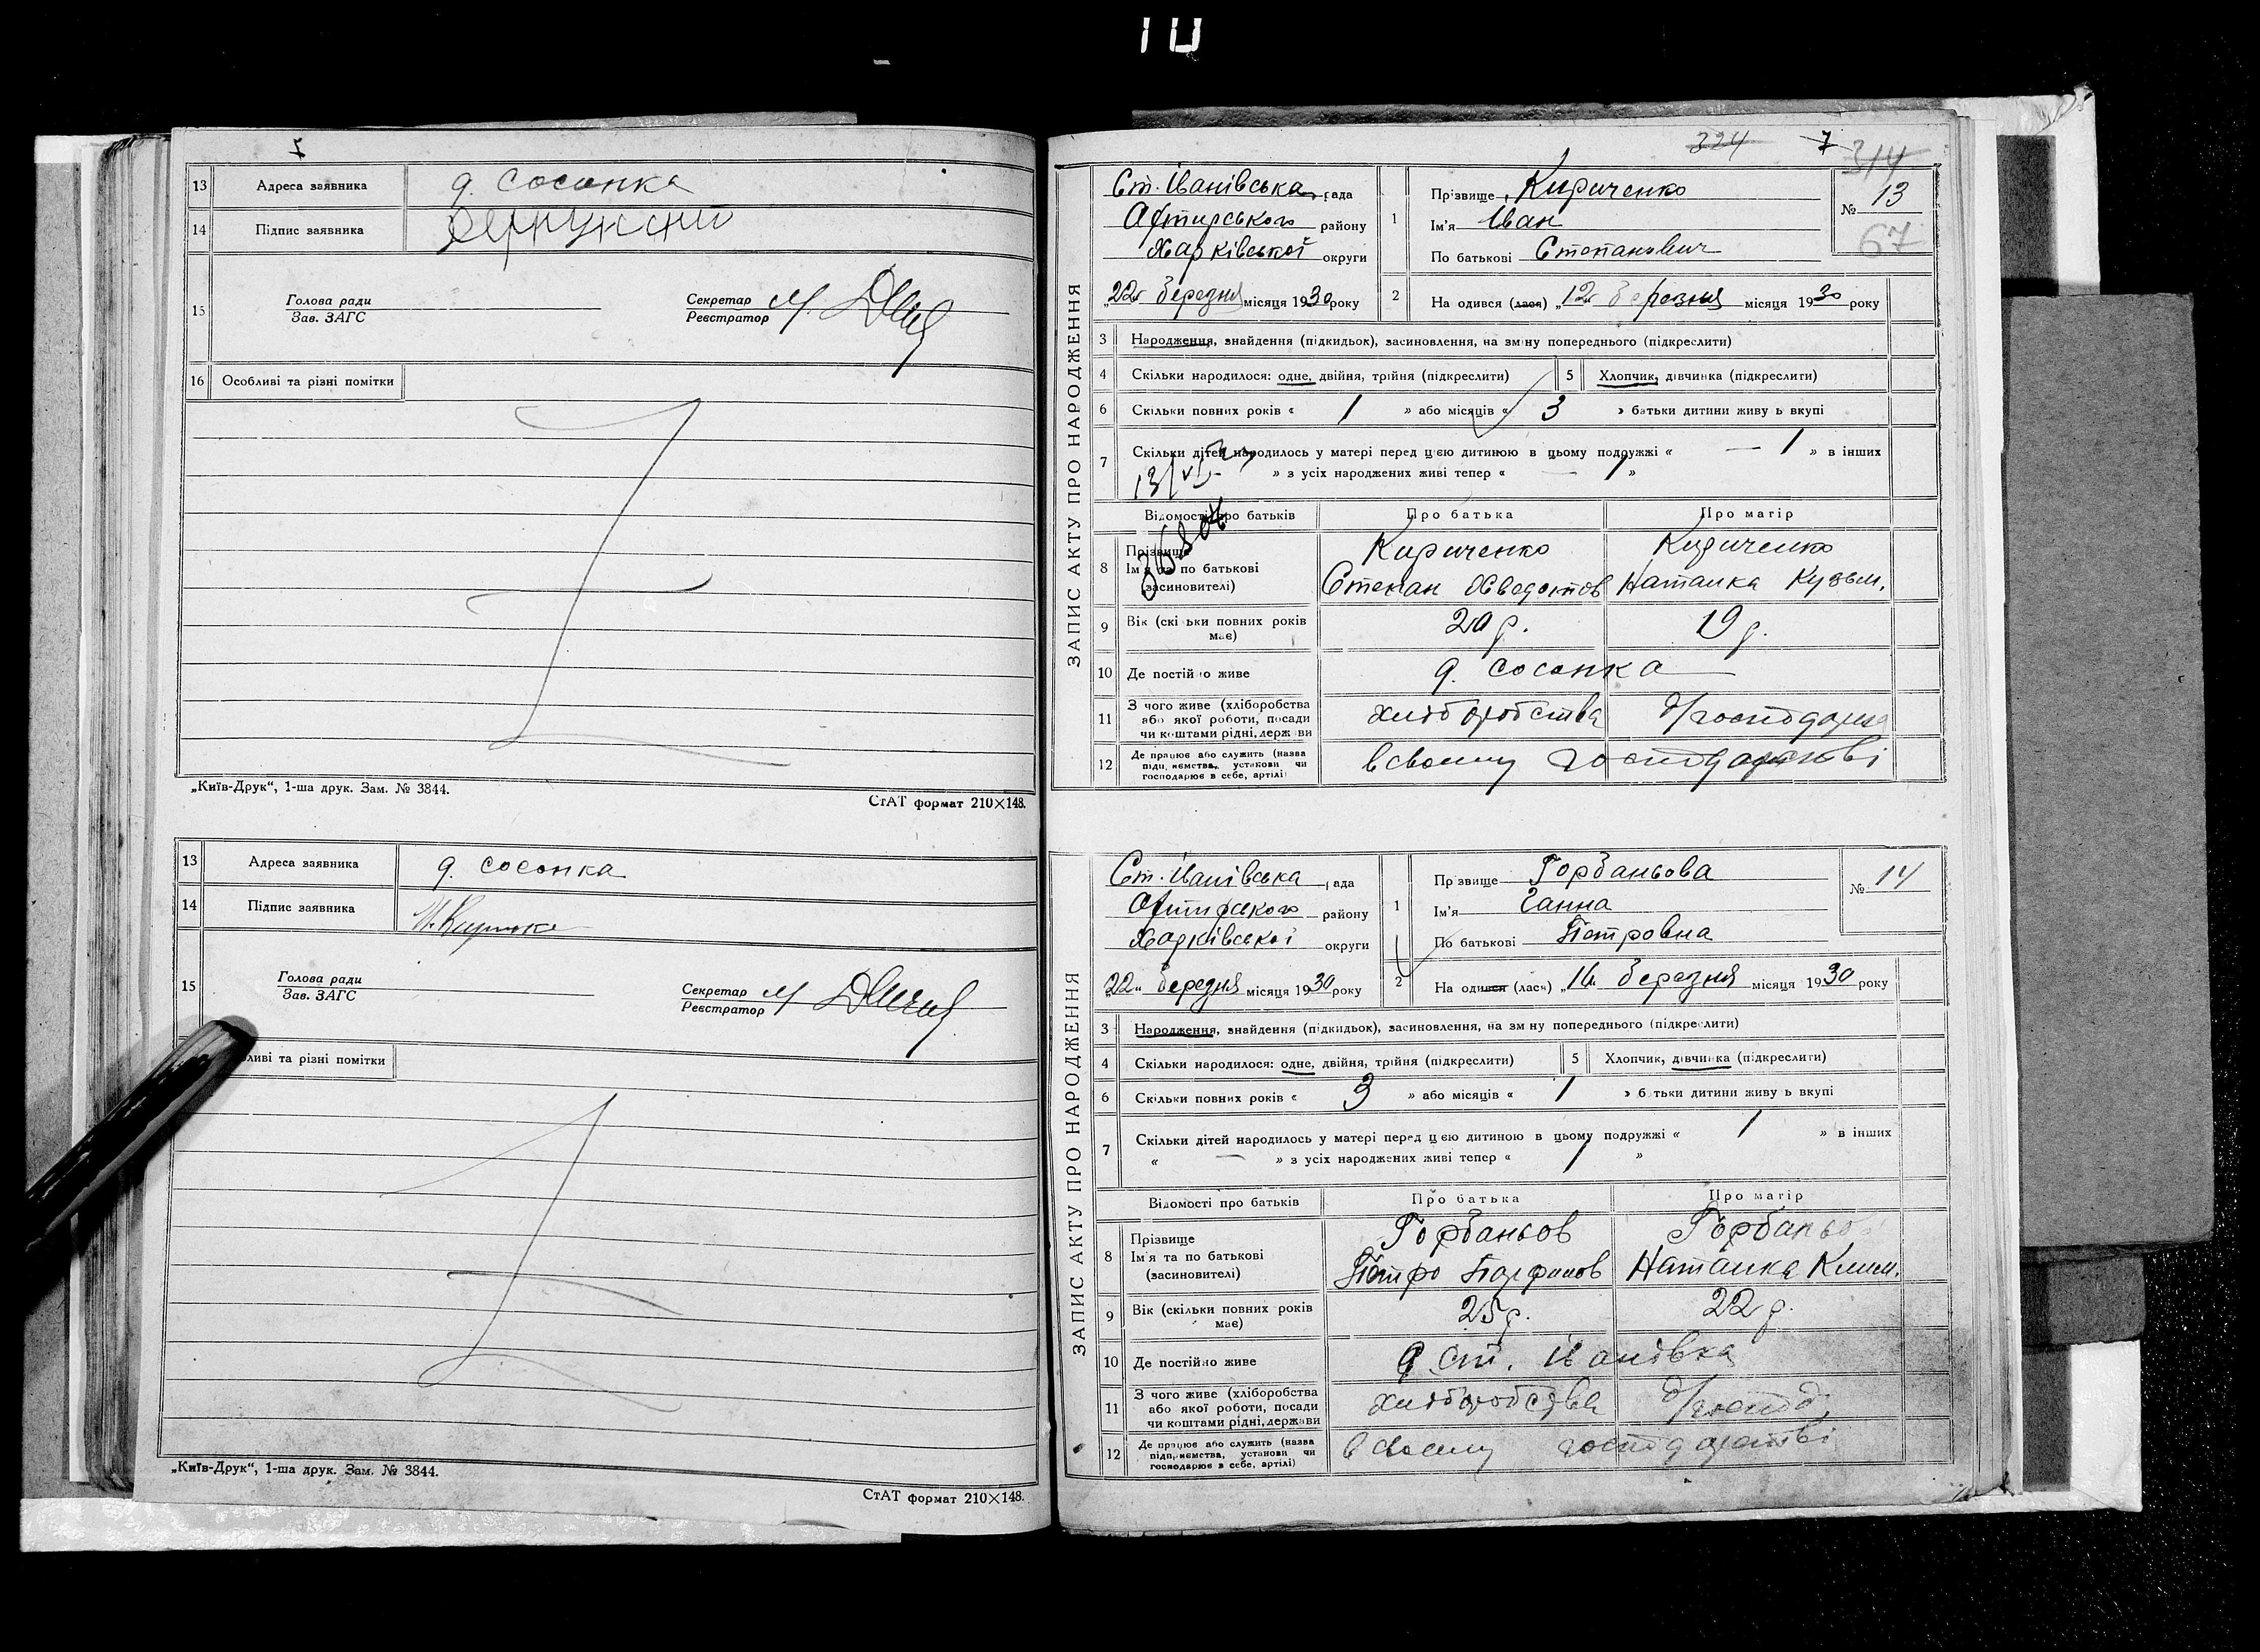 13 Адреса заявника д. Сосонка
14 Підпис заявника
15 Голова ради
Зав. ЗАГС
Секретар
Реєстратор
16 Особливі та різні помітки
„Київ-Друк“, 1-ша друк. Зам. № 3844.
СтАТ формат 210×148.
13 Адреса заявника д. Сосонка
14 Підпис заявника
15 Голова ради
Зав. ЗАГС
Секретар
Реєстратор
та різні помітки
„Київ-Друк“, 1-ша друк. Зам. № 3844.
СтАТ формат 210×148.
324 7 314
ЗАПИС АКТУ ПРО НАРОДЖЕННЯ
Ст. Іванівська рада
Охтирського району
Харківської округи
„22“ березня місяця 1930 року
1 Прізвище Кириченко
Ім'я Іван
По батькові Степанович
№ 13
67
2 На одився (лася) „12“ березня місяця 1930 року
3 Народження, знайдення (підкидьок), засиновлення, на зміну попереднього (підкреслити)
4 Скільки народилося: одне, двійня, трійня (підкреслити) 5 Хлопчик, дівчинка (підкреслити)
6 Скільки повних років « 1 » або місяців « 3 » батьки дитини живуть вкупі
7 Скільки дітей народилось у матері перед цією дитиною в цьому подружжі « — 1 » в інших
» з усіх народжених живі тепер « — 1 »
Відомості про батьків Про батька Про матір
8 Прізвище Кириченко Кириченко
Ім'я та по батькові Степан Хведотов Наталка Кузьм.
(засиновителі)
9 Вік (скільки повних років має) 20 р. 19 р.
10 Де постійно живе д. Сосонка
11 З чого живе (хліборобства хліборобства
або якої роботи, посади
чи коштами рідні, держави
12 Де працює або служить (назва в своєму господарстві
підприємства, установи чи
господарює в себе, артілі)
ЗАПИС АКТУ ПРО НАРОДЖЕННЯ
Ст. Іванівська рада
Охтирського району
Харківської округи
„22“ березня місяця 1930 року
1 Прізвище Горбаньова
Ім'я Ганна
По батькові Петровна
№ 14
2 На одився (лася) „16“ березня місяця 1930 року
3 Народження, знайдення (підкидьок), засиновлення, на зміну попереднього (підкреслити)
4 Скільки народилося: одне, двійня, трійня (підкреслити) 5 Хлопчик, дівчинка (підкреслити)
6 Скільки повних років « 3 » або місяців « 1 » батьки дитини живуть вкупі
7 Скільки дітей народилось у матері перед цією дитиною в цьому подружжі « 1 » в інших
« — » з усіх народжених живі тепер « 1 »
Відомості про батьків Про батька Про матір
8 Прізвище Горбаньов Горбаньо
Ім'я та по батькові Петро Парфинов Наталка Клим.
(засиновителі)
9 Вік (скільки повних років має) 25 р. 22 р.
10 Де постійно живе д. Ст. Іванівка
11 З чого живе (хліборобства хліборобства
або якої роботи, посади
чи коштами рідні, держави
12 Де працює або служить (назва в своєму господарстві
підприємства, установи чи
господарює в себе, артілі)